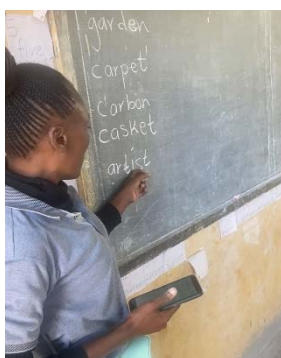 garden
carpet
carbon
casket
artist